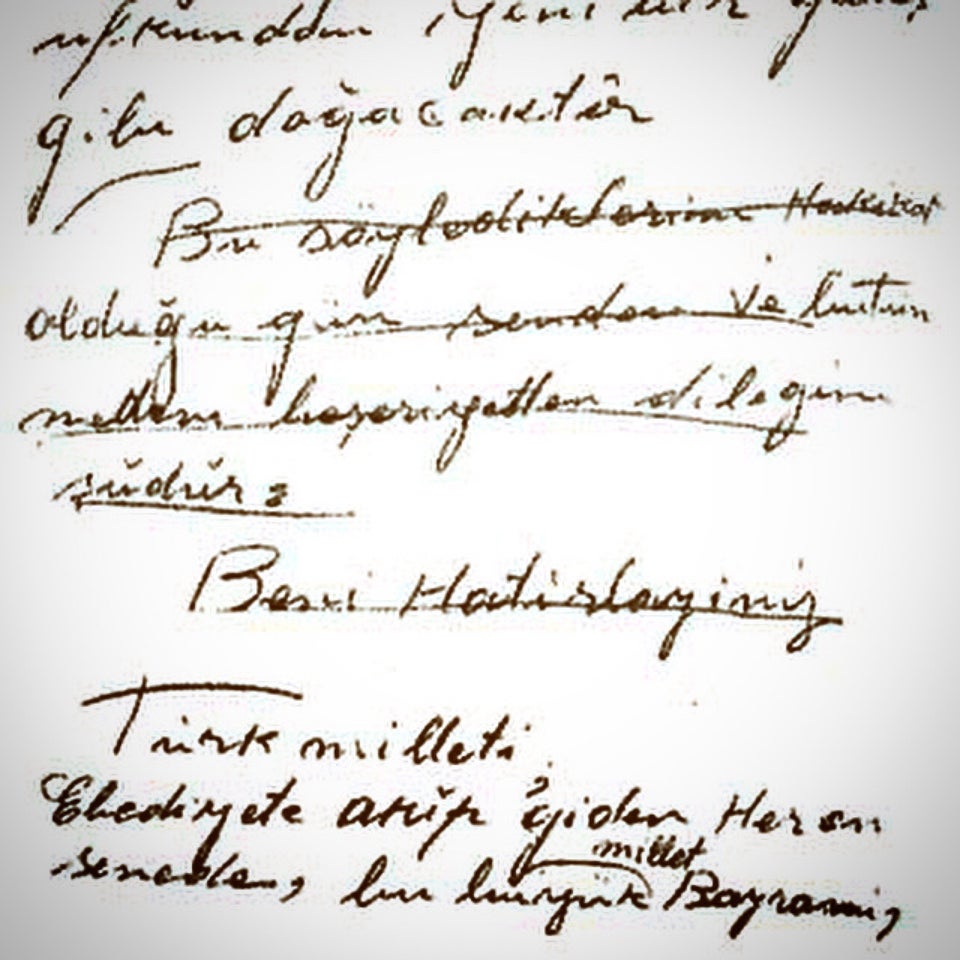 ufkundan yeni bir güneş
gibi doğacaktır
Bu söylediklerim Hakikat
olduğu gün senden ve bütün
medeni beşeriyetten dileğim
şudur:
Beni Hatırlayınız
Türk milleti
Ebediyete akıp giden Her on
senede, bu büyük millet Bayramı,